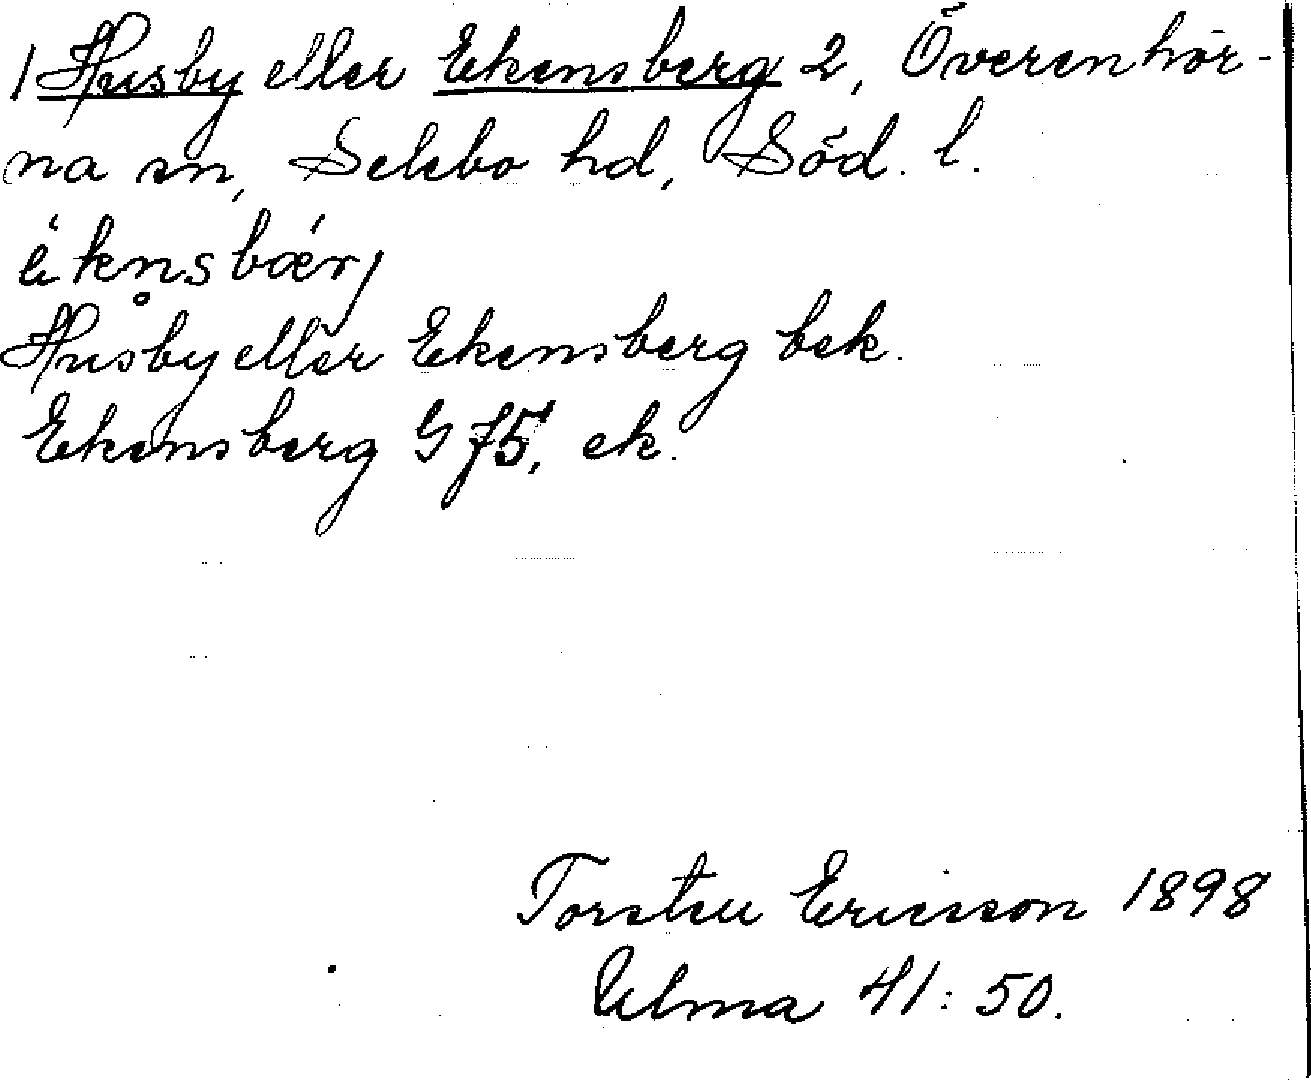 / Husby eller Ekensberg 2, Överenhör-
na sn, Selebo hd, Söd. l.
é kn̥sbǽrj
Husby eller Ekensberg bek.
Ekensberg G 75, ek.
Torsten Ericsson 1898
Ulma 41:50.